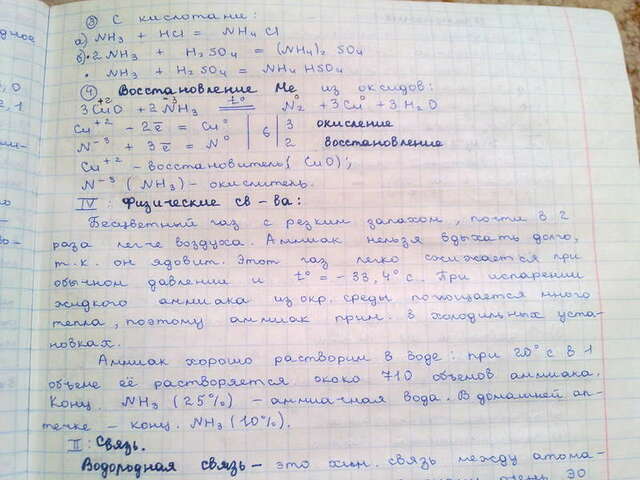 ③ С кислотами:
а) NH3 + HCl = NH4Cl
б) 2NH3 + H2SO4 = (NH4)2 SO4
• NH3 + H2SO4 = NH4HSO4
④ Восстановление Ме из оксидов:
3Cu+2O + 2N-3H3 =t°= N2° + 3Cu° + 3H2O
Cu+2 - 2e = Cu° | 6 | 3 окисление
N-3 + 3e = N° | 2 восстановление
Cu+2 - восстановитель (CuO);
N-3 (NH3) - окислитель.
IV: Физические св-ва:
Бесцветный газ с резким запахом, почти в 2
раза легче воздуха. Аммиак нельзя вдыхать долго,
т.к. он ядовит. Этот газ легко сжижается при
обычном давлении и t° = -33,4°С. При испарении
жидкого аммиака из окр. среды поглощается много
тепла, поэтому аммиак прим. в холодильных уста-
новках.
Аммиак хорошо растворим в воде: при 20°С в 1
объеме её растворяется около 710 объемов аммиака.
Конц. NH3 (25%) - аммиачная вода. В домашней ап-
течке - конц. NH3 (10%).
II: Связь.
Водородная связь - это хим. связь между атома-